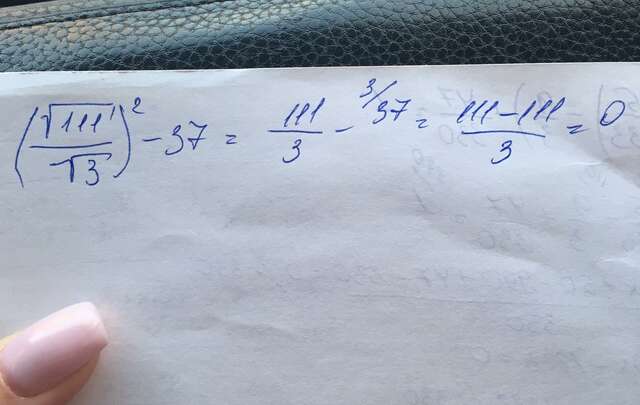 (√111/√3)² - 37 = 111/3 - ³/37 = 111-111/3 = 0